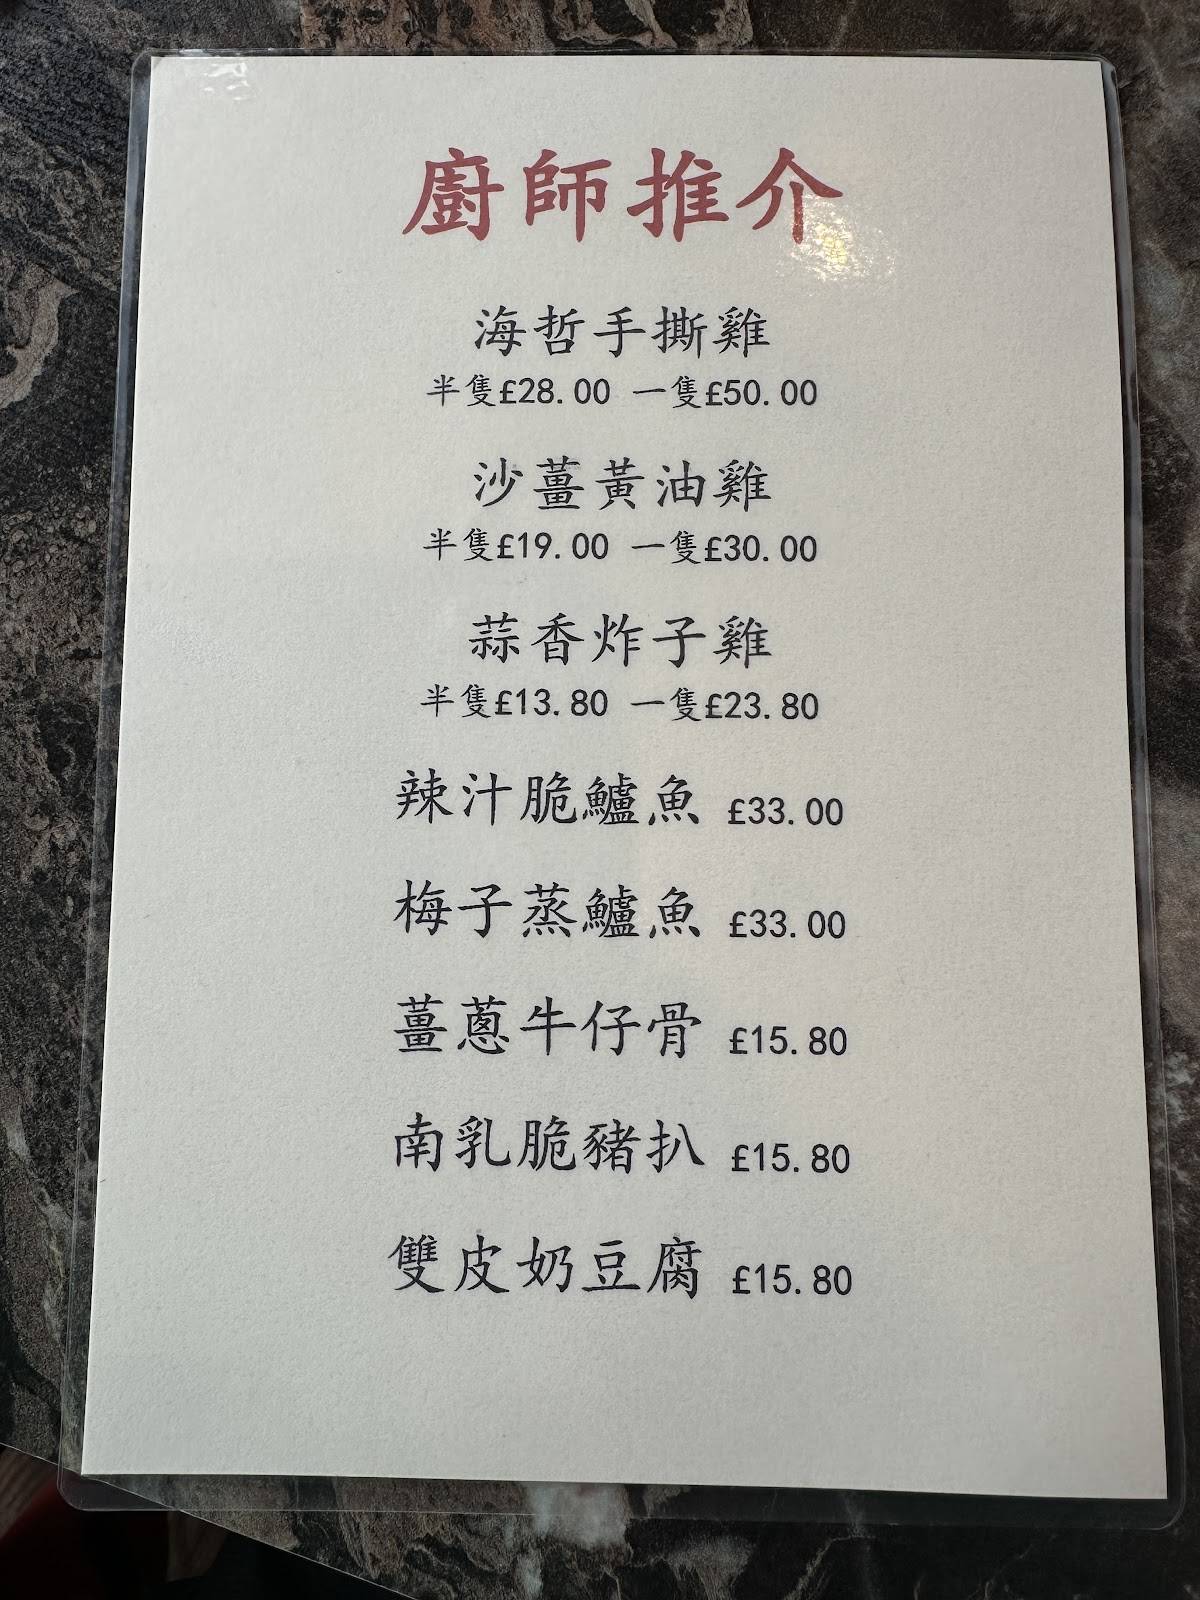 廚師推介
海哲手撕雞
半隻£28.00 一隻£50.00
沙薑黃油雞
半隻£19.00 一隻£30.00
蒜香炸子雞
半隻£13.80 一隻£23.80
辣汁脆鱸魚 £33.00
梅子蒸鱸魚 £33.00
薑蔥牛仔骨 £15.80
南乳脆豬扒 £15.80
雙皮奶豆腐 £15.80